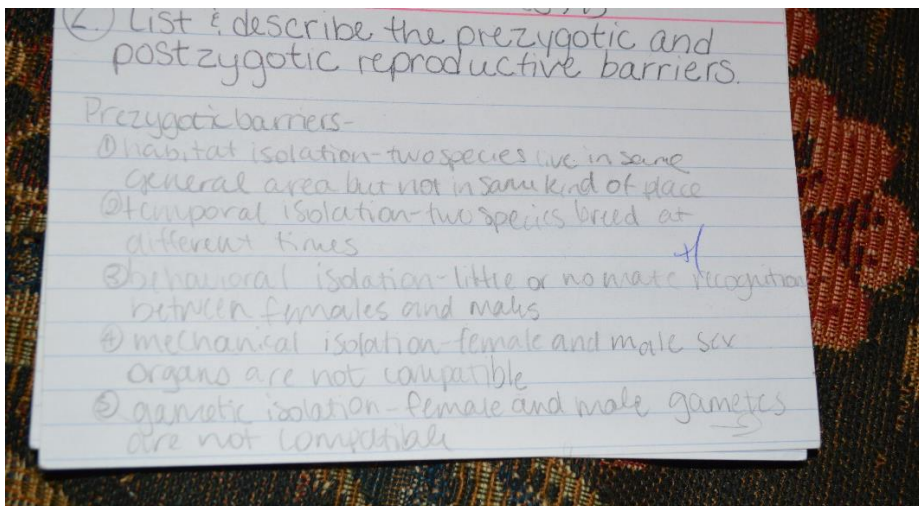 2. List & describe the prezygotic and
postzygotic reproductive barriers.
Prezygotic barriers-
① habitat isolation-two species live in same
general area but not in same kind of place
② temporal isolation-two species breed at
different times
③ behavioral isolation-little or no mate recognition
between females and males
④ mechanical isolation-female and male sex
organs are not compatible
⑤ gametic isolation-female and male gametes
are not compatible